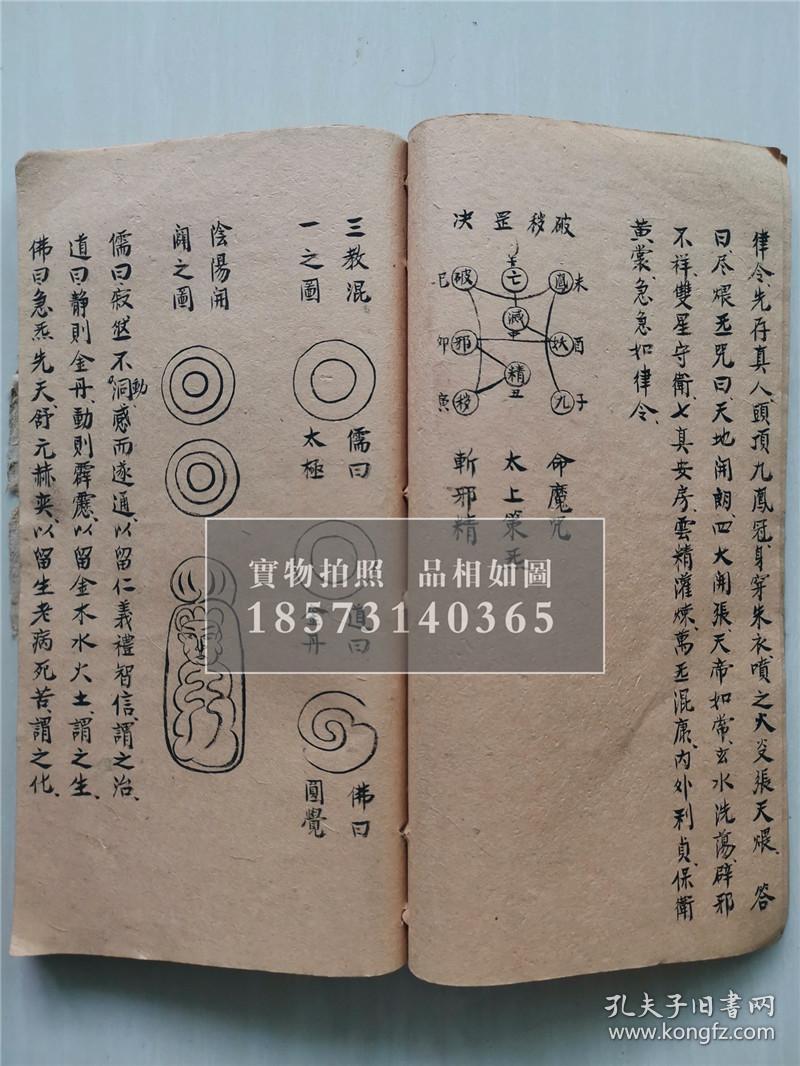 律令先存真人頭頂九鳳冠身穿朱衣噴之大炎張天煨、荅
曰尽煨炁咒曰天地開朗四大開張天帝如常玄水洗蕩辟邪
不祥雙星守衛七真安房雲精灌煉萬炁混康内外利貞保衛
黄裳急急如律令、
破秽罡决
鳳未
妖酉
九子
亡
滅
精丑
破巳
邪卯
秽寅
命魔咒
太上策炁
斬邪精
三教混
一之圖
儒曰
太極
道曰
丹
佛曰
圓覺
陰陽開
闢之圖
儒曰寂然不洞動感而遂通以留仁義禮智信謂之治、
道曰静則金丹動則霹靂以留金木水火土謂之生、
佛曰急炁先天舒元赫奕以留生老病死苦謂之化、
實物拍照 品相如圖
18573140365
孔夫子旧书网
www.kongfz.com